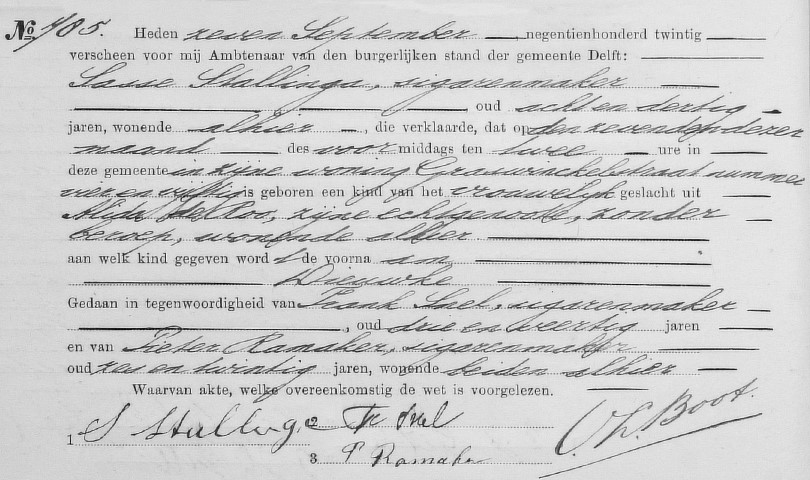 No. 785. Heden zeven September negentienhonderd twintig
verscheen voor mij Ambtenaar van den burgerlijken stand der gemeente Delft:
Sasse Stallinga, sigarenmaker
oud acht en dertig
jaren, wonende alhier, die verklaarde, dat op den zevenden dezer
maand des voor middags ten twee ure in
deze gemeente in zijne woning Graswinckelstraat nummer
vier en vijftig is geboren een kind van het vrouwelijk geslacht uit
Alyda Roo, zijne echtgenoote, zonder
beroep, wonende alhier
aan welk kind gegeven word t de voorna am
Dieuwke
Gedaan in tegenwoordigheid van Frank Snel, sigarenmaker
, oud drie en veertig jaren
en van Pieter Ramaker, sigarenmaker
oud zes en twintig jaren, wonende beiden alhier
Waarvan akte, welke overeenkomstig de wet is voorgelezen.
1 S Stallinga 2 Fr Snel
3 P Ramaker
Ch. Boot.